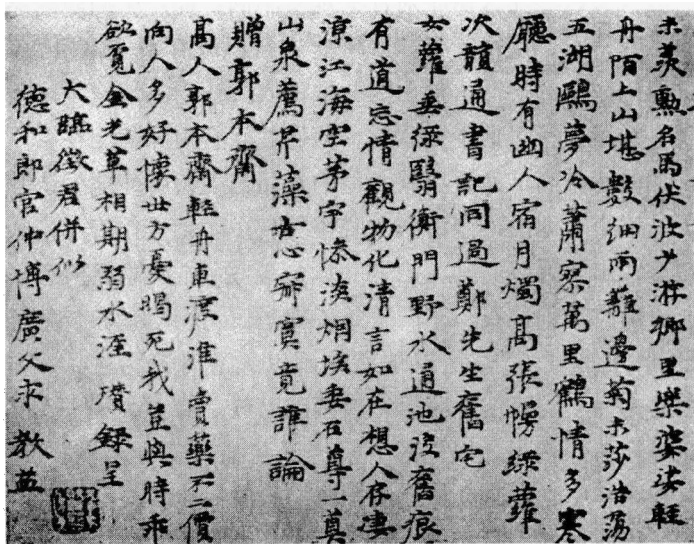 未羨勲名馬伏波少游鄉里樂婆娑輕
舟陌上山堪數細雨籬邊菊未莎浩蕩
五湖鷗夢冷蕭寥萬里鶴情多寒
廳時有幽人宿月燭高張幔綠蘿
次韻通書記同過鄭先生舊宅
女蘿垂綠翳衡門野水通池沒舊痕
有道忘情觀物化清言如在想人存凄
涼江海空茅宇慘淡烟埃委石尊一奠
山泉薦芹藻古心寂寞竟誰論
贈郭本齋
高人郭本齋輕舟東渡淮賣藥不二價
向人多好懷世方憂暍死我豈與時乖
欲覓金光草相期弱水涯瓚錄呈
大臨徵君併似
德和郎官仲博廣文求教益